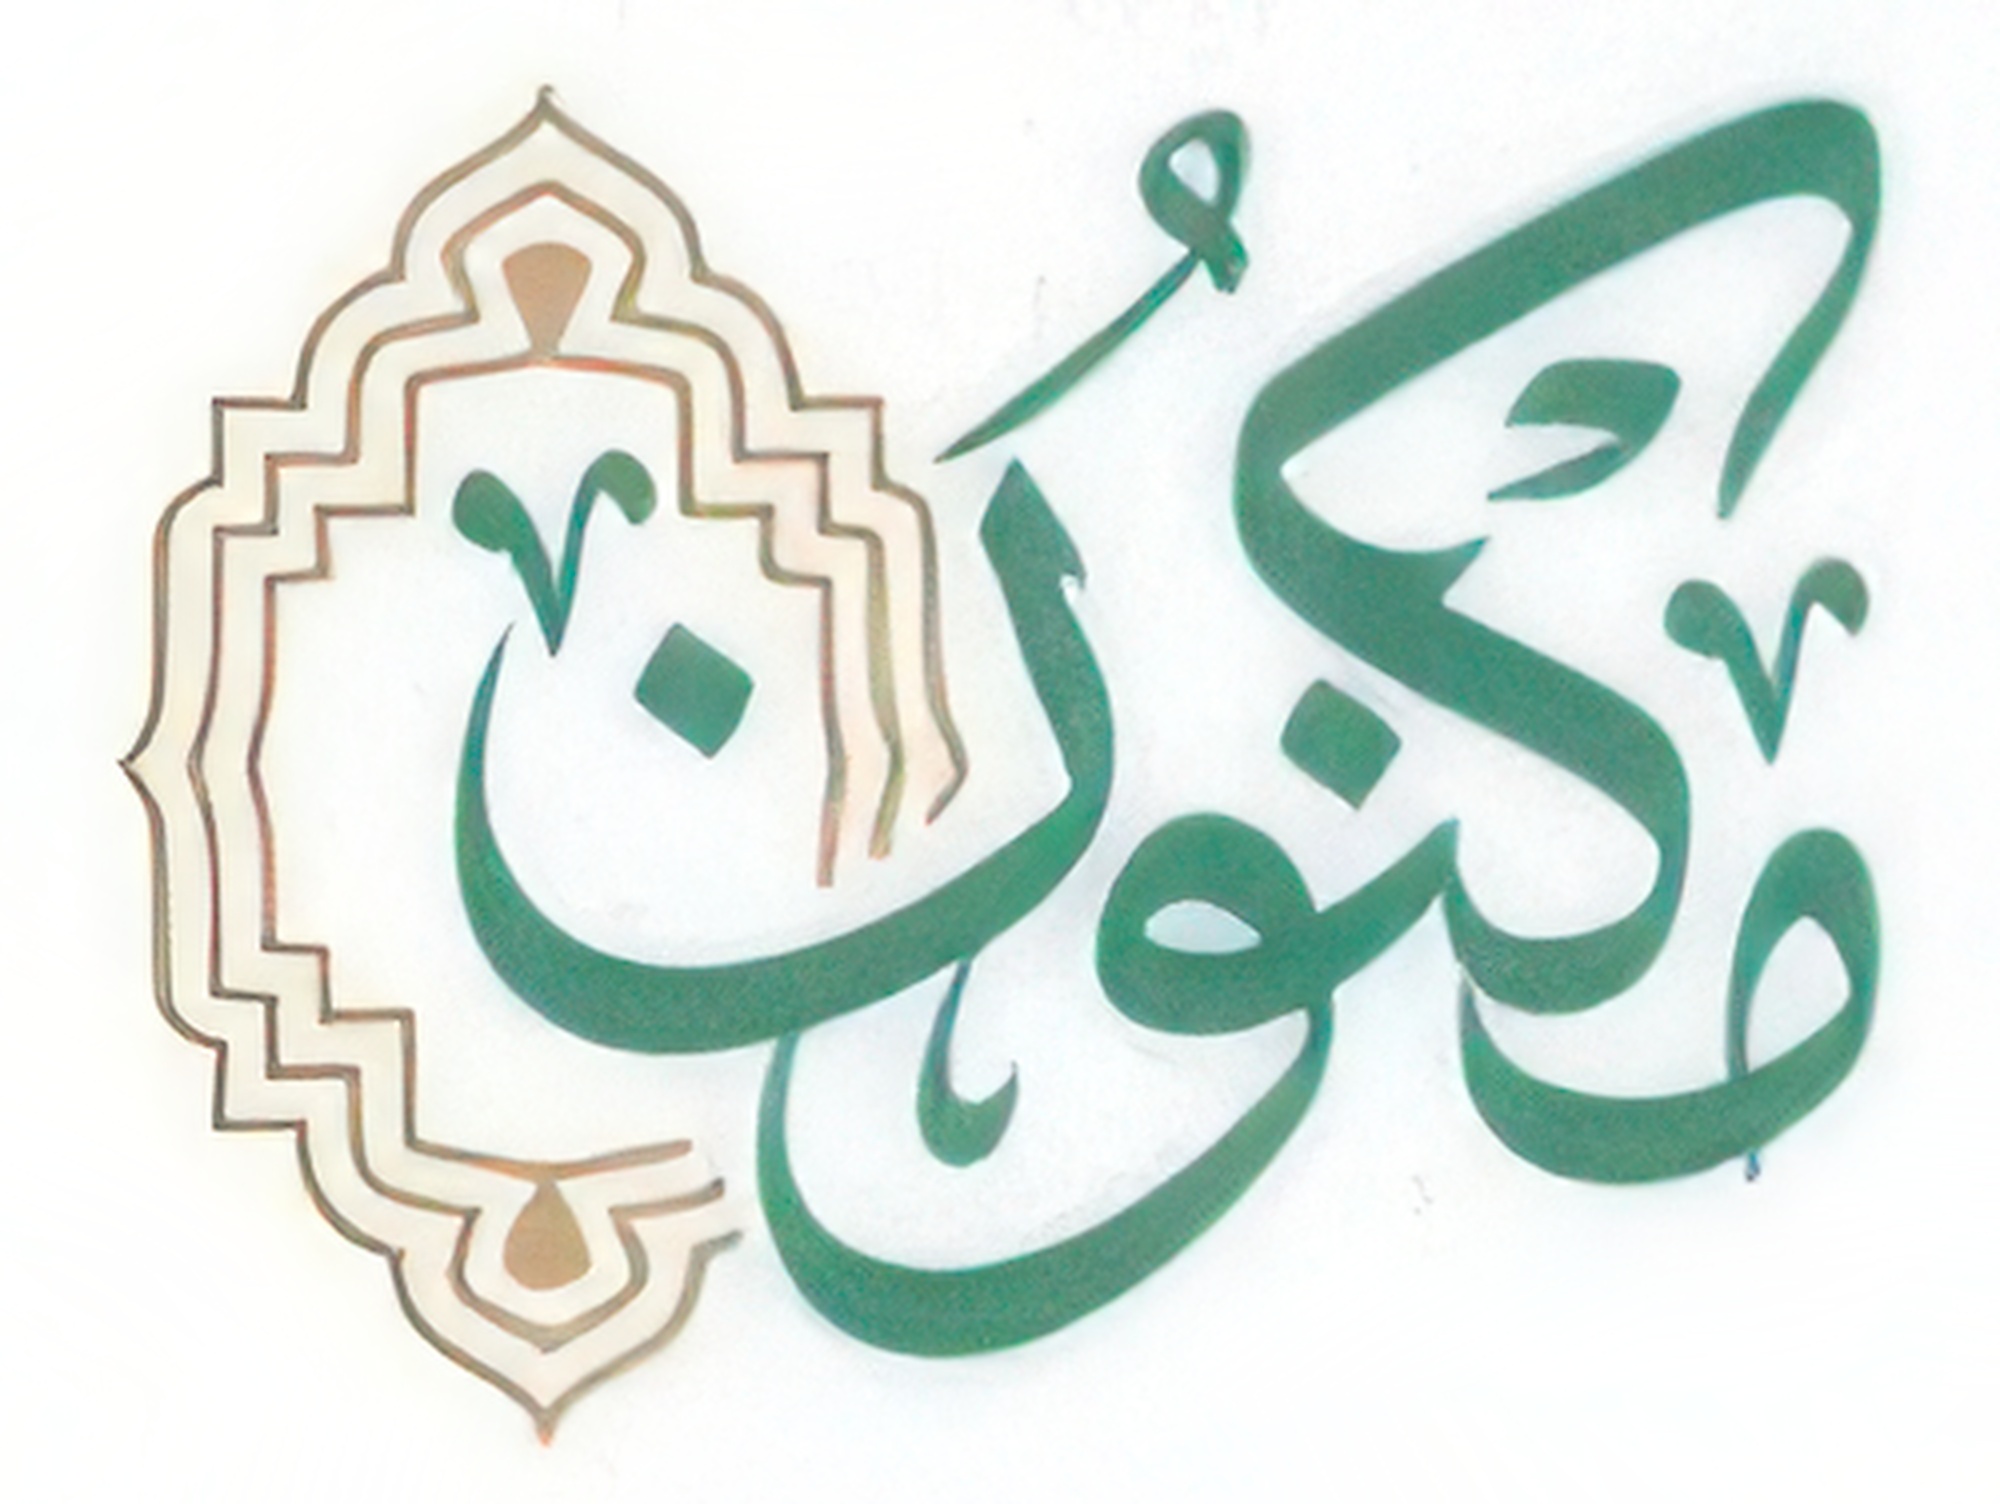 مكنون